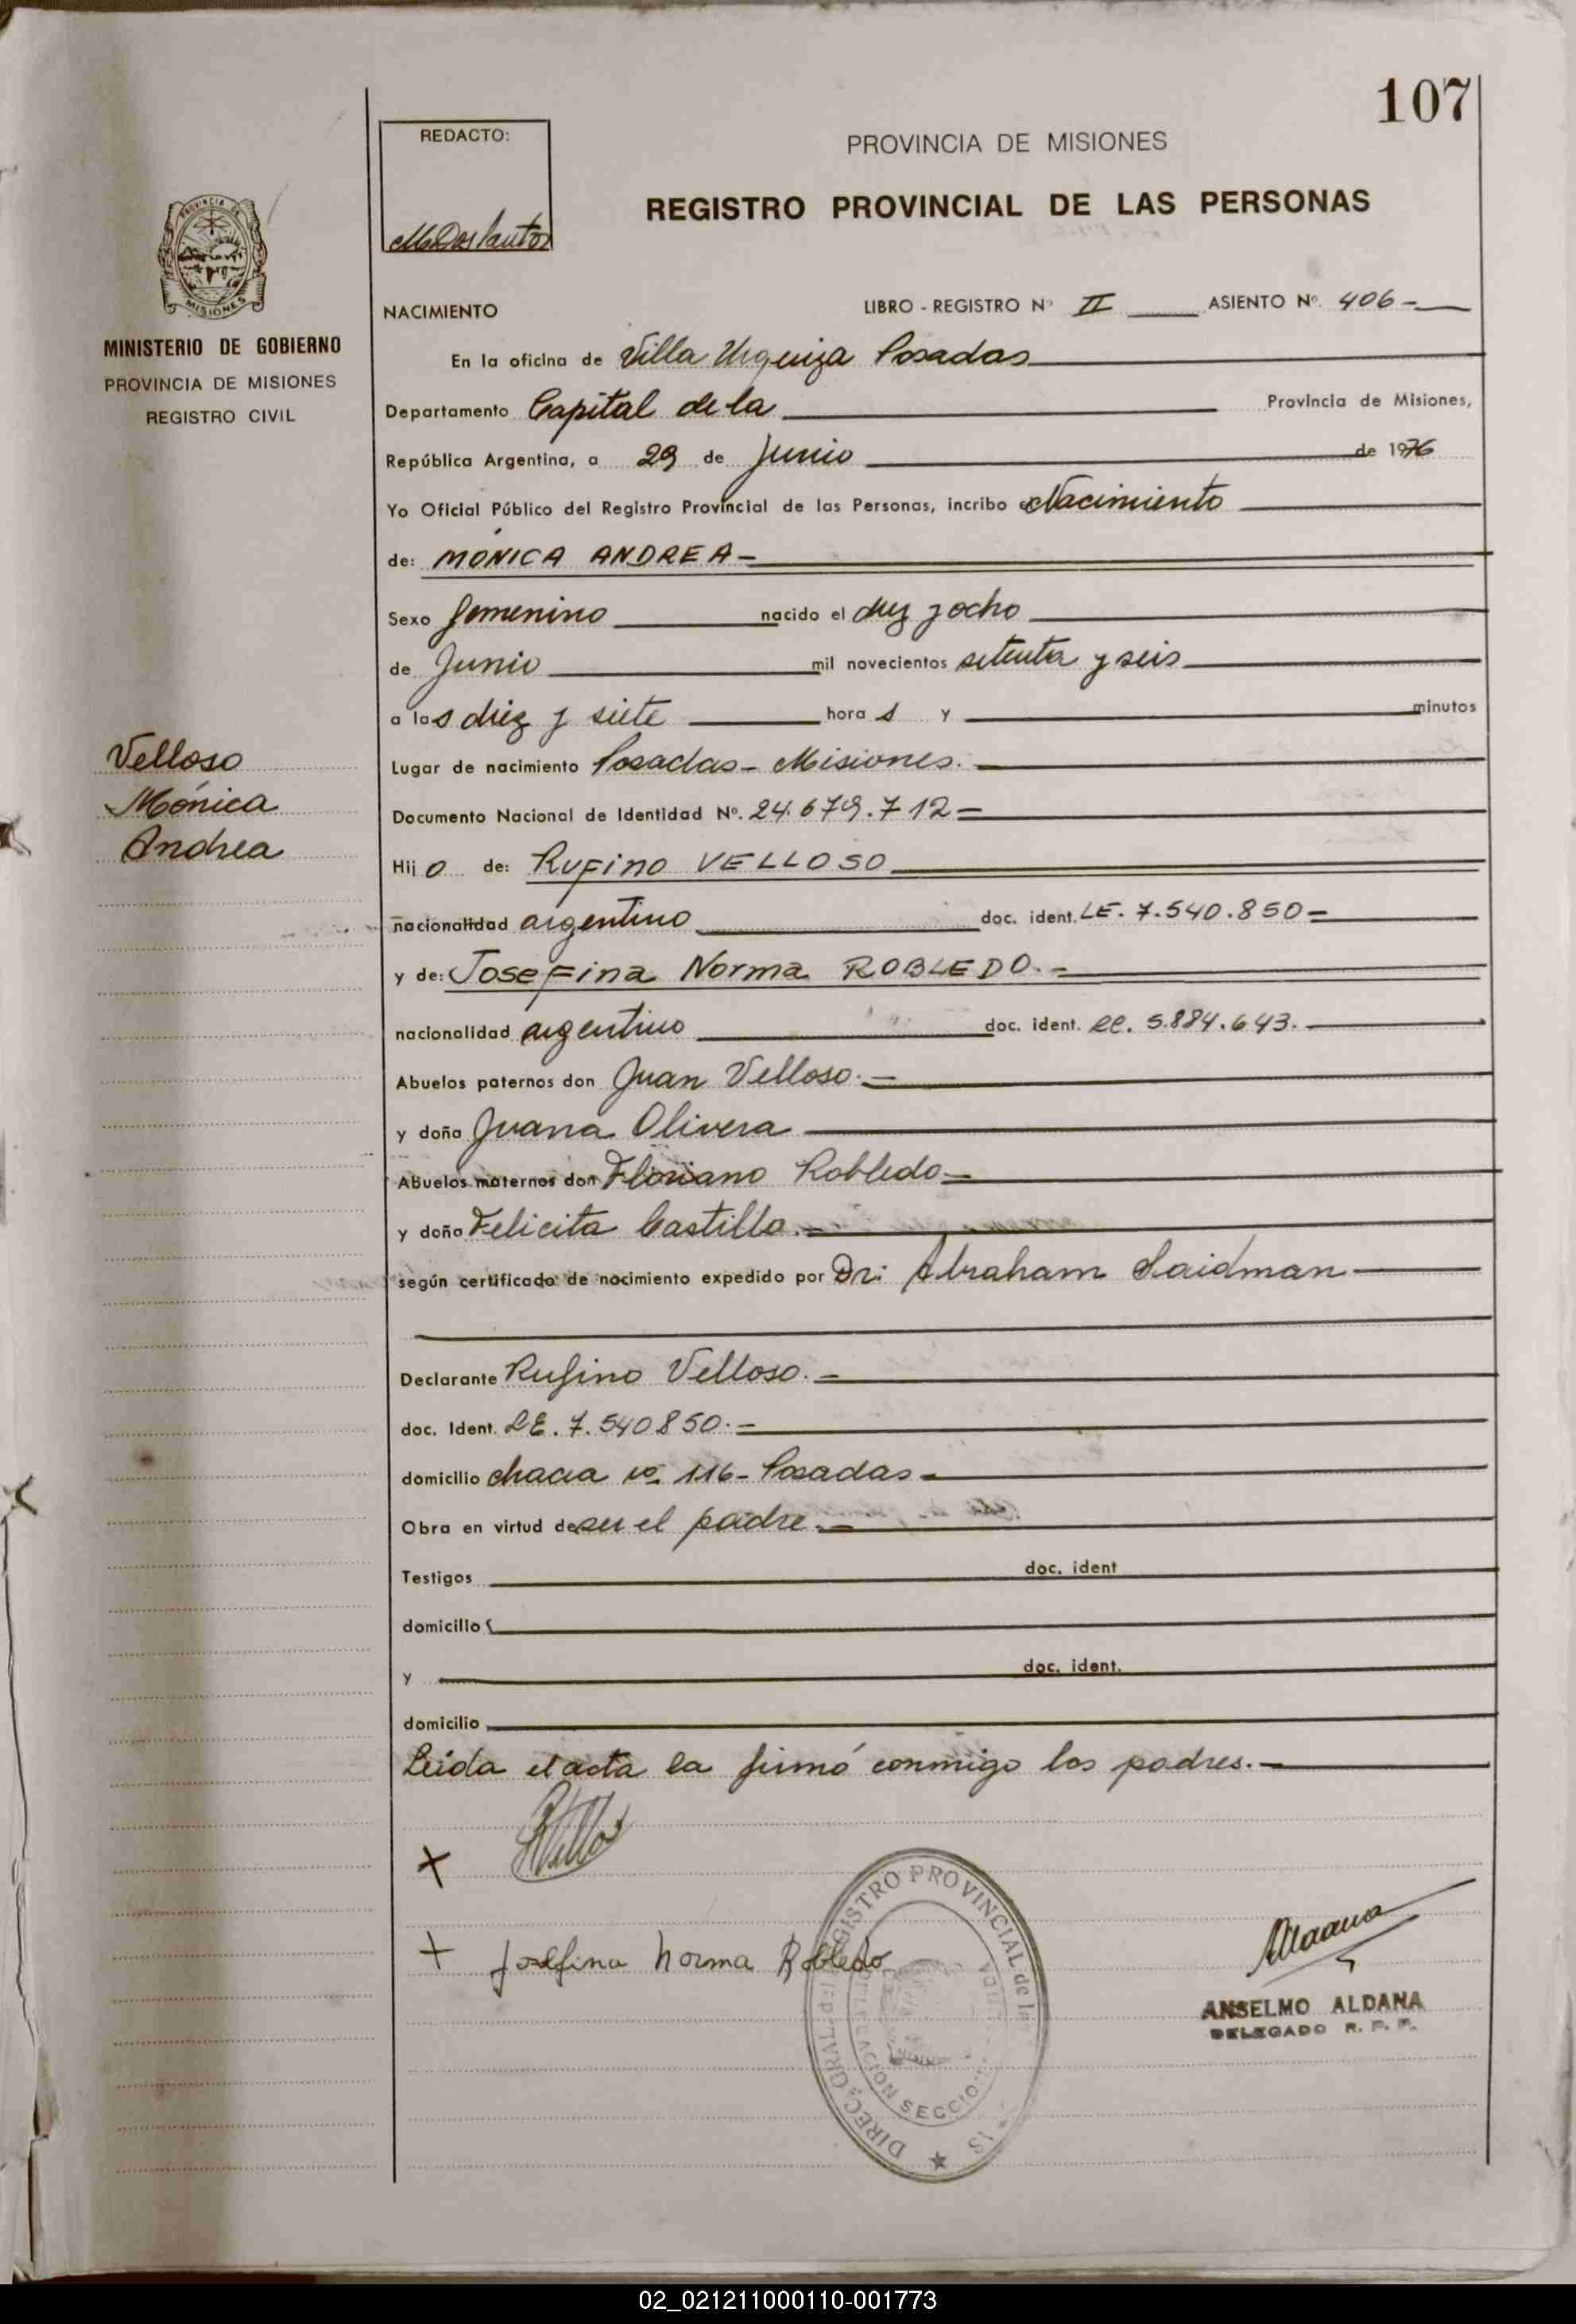 107
REDACTO:
MDosSantos
PROVINCIA DE MISIONES
REGISTRO PROVINCIAL DE LAS PERSONAS
PROVINCIA DE
MISIONES
MINISTERIO DE GOBIERNO
PROVINCIA DE MISIONES
REGISTRO CIVIL
NACIMIENTO
LIBRO - REGISTRO Nº II ASIENTO Nº. 406-
En la oficina de Villa Urquiza Posadas
Departamento Capital de la Provincia de Misiones,
República Argentina, a 29 de Junio de 1976
Yo Oficial Público del Registro Provincial de las Personas, incribo el Nacimiento
de: MÓNICA ANDREA-
Sexo femenino nacido el diez y ocho
de Junio mil novecientos setenta y seis
a las diez y siete hora s y minutos
Velloso
Mónica
Andrea
Lugar de nacimiento Posadas - Misiones.
Documento Nacional de Identidad Nº. 24.679.712=
Hijo de: RUFINO VELLOSO
nacionalidad argentino doc. ident. LE. 7.540.850=
y de: JOSEFINA NORMA ROBLEDO.-
nacionalidad argentino doc. ident. LC. 5.884.643.
Abuelos paternos don Juan Velloso.-
y doña Juana Olivera
Abuelos maternos don Floriano Robledo=
y doña Felicita Castillo.-
según certificado de nacimiento expedido por Dr: Abraham Saidman
Declarante Rufino Velloso.-
doc. Ident. LE. 7.540850.-
domicilio chacra nº 116- Posadas-
Obra en virtud de ser el padre.-
Testigos doc. ident
domicilio
y doc. ident.
domicilio
Leida el acta la firmó conmigo los padres.-
X
X Josefina Norma Robledo
REGISTRO PROVINCIAL de la
DIREC. GRAL.
SECCIO
ANSELMO ALDANA
DELEGADO R. P. P.
02_021211000110-001773